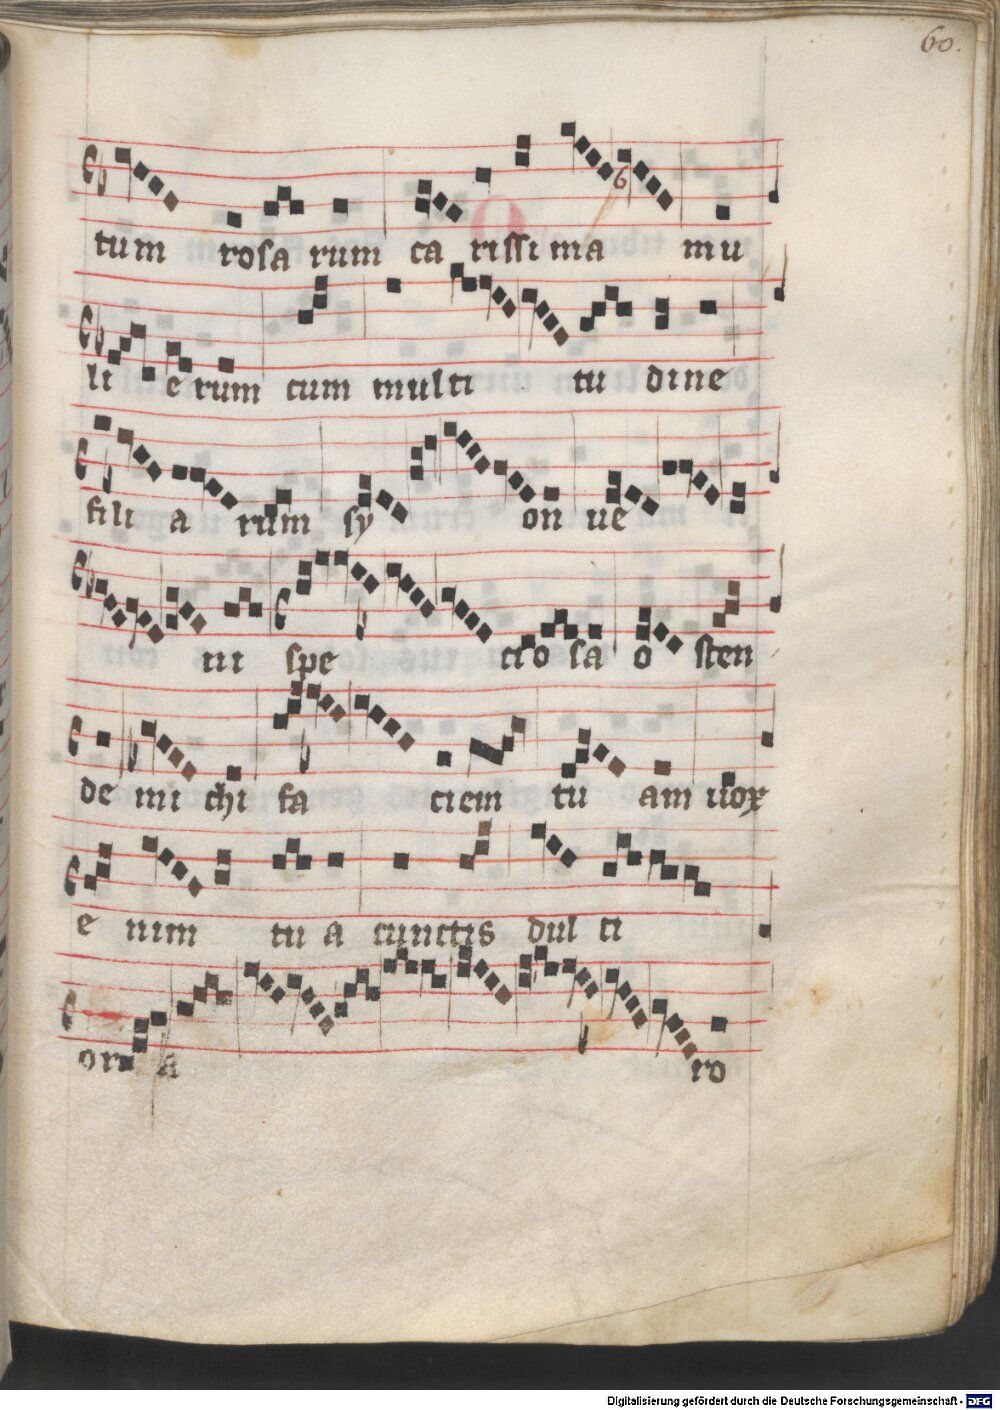 60.
tum rosa rum ca rissi ma mu
li e rum cum multi tu dine
fili a rum sy on ue
ni spe cio sa o sten
de mi chi fa ciem tu am uox
e nim tu a cunctis dul ci
or a ro
Digitalisierung gefördert durch die Deutsche Forschungsgemeinschaft - DFG